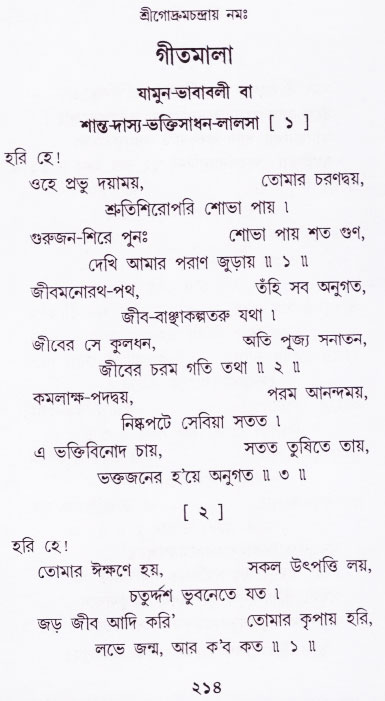 শ্রীগোদ্রুমচন্দ্রায় নমঃ
গীতমালা
যামুন-ভাবাবলী বা
শান্ত-দাস্য-ভক্তিসাধন-লালসা [ ১ ]
হরি হে!
ওহে প্রভু দয়াময়, তোমার চরণদ্বয়,
শ্রুতিশিরোপরি শোভা পায় ।
গুরুজন-শিরে পুনঃ শোভা পায় শত গুণ,
দেখি আমার পরাণ জুড়ায় ॥ ১ ॥
জীবমনোরথ-পথ, তঁহি সব অনুগত,
জীব-বাঞ্ছাকল্পতরু যথা ।
জীবের সে কুলধন, অতি পূজ্য সনাতন,
জীবের চরম গতি তথা ॥ ২ ॥
কমলাক্ষ-পদদ্বয়, পরম আনন্দময়,
নিষ্কপটে সেবিয়া সতত ।
এ ভক্তিবিনোদ চায়, সতত তুষিতে তায়,
ভক্তজনের হ'য়ে অনুগত ॥ ৩ ॥
[ ২ ]
হরি হে!
তোমার ঈক্ষণে হয়, সকল উৎপত্তি লয়,
চতুর্দ্দশ ভুবনেতে যত ।
জড় জীব আদি করি' তোমার কৃপায় হরি,
লভে জন্ম, আর ক'ব কত ॥ ১ ॥
২১৪